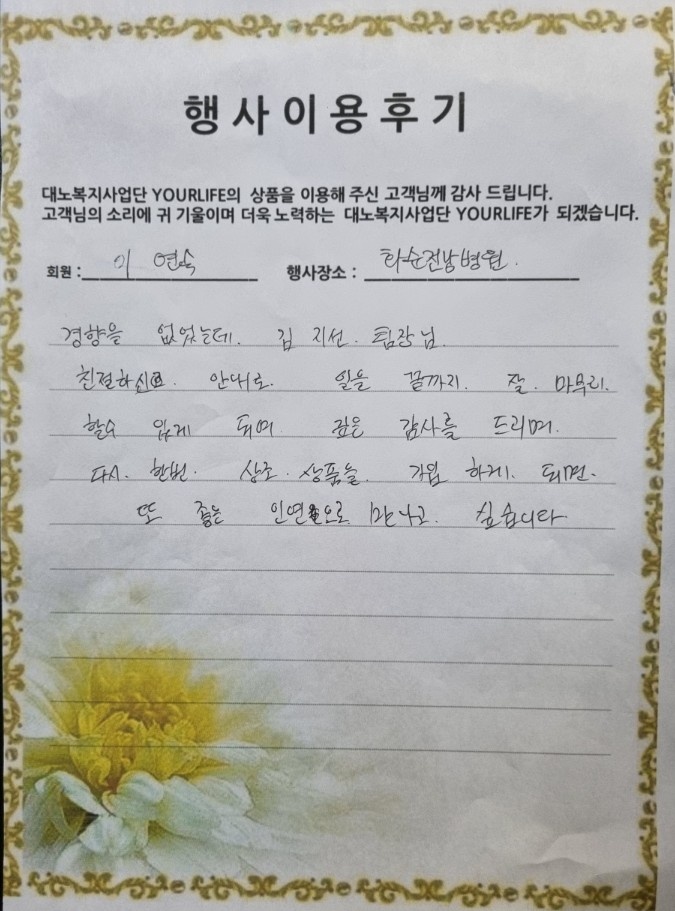 행사이용후기
대노복지사업단 YOURLIFE의 상품을 이용해 주신 고객님께 감사 드립니다.
고객님의 소리에 귀 기울이며 더욱 노력하는 대노복지사업단 YOURLIFE가 되겠습니다.
회원 : 이 연숙 행사장소 : 화순전남병원.
경향을 없었는데. 김 지선. 팀장님.
친절하신 안내로. 일을 끝까지. 잘. 마무리.
할수 있게 되며 깊은 감사를 드리며.
다시. 한번. 상조. 상품을. 가입 하게. 되면.
또 좋은 인연으로 만나고. 싶습니다